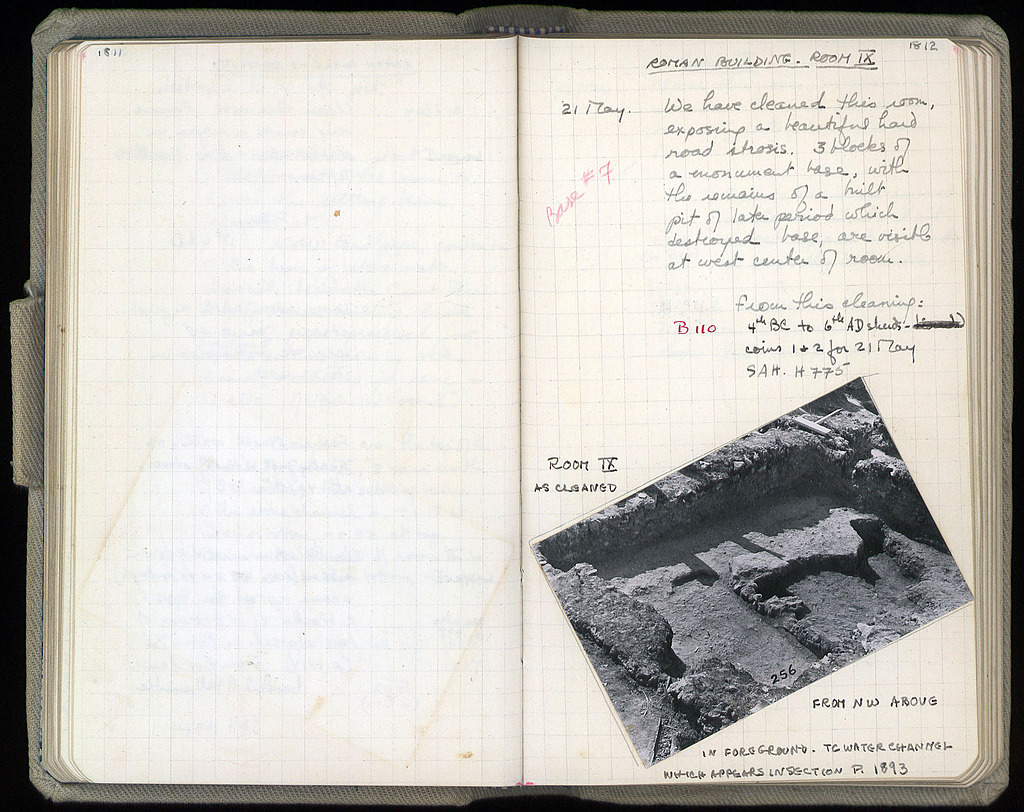 1811
1812
ROMAN BUILDING. ROOM IX
21 May. We have cleaned this room,
exposing a beautiful hard
road strosis. 3 blocks of
a monument base, with
the remains of a built
pit of late period which
destroyed base, are visible
at west center of room.
Base #7
From this cleaning:
B 110 4th BC to 6th AD sherds -
coins 1 & 2 for 21 May
SAH. H 775
ROOM IX
AS CLEANED
256
FROM NW ABOVE
IN FOREGROUND. TC WATER CHANNEL
WHICH APPEARS IN SECTION P. 1893